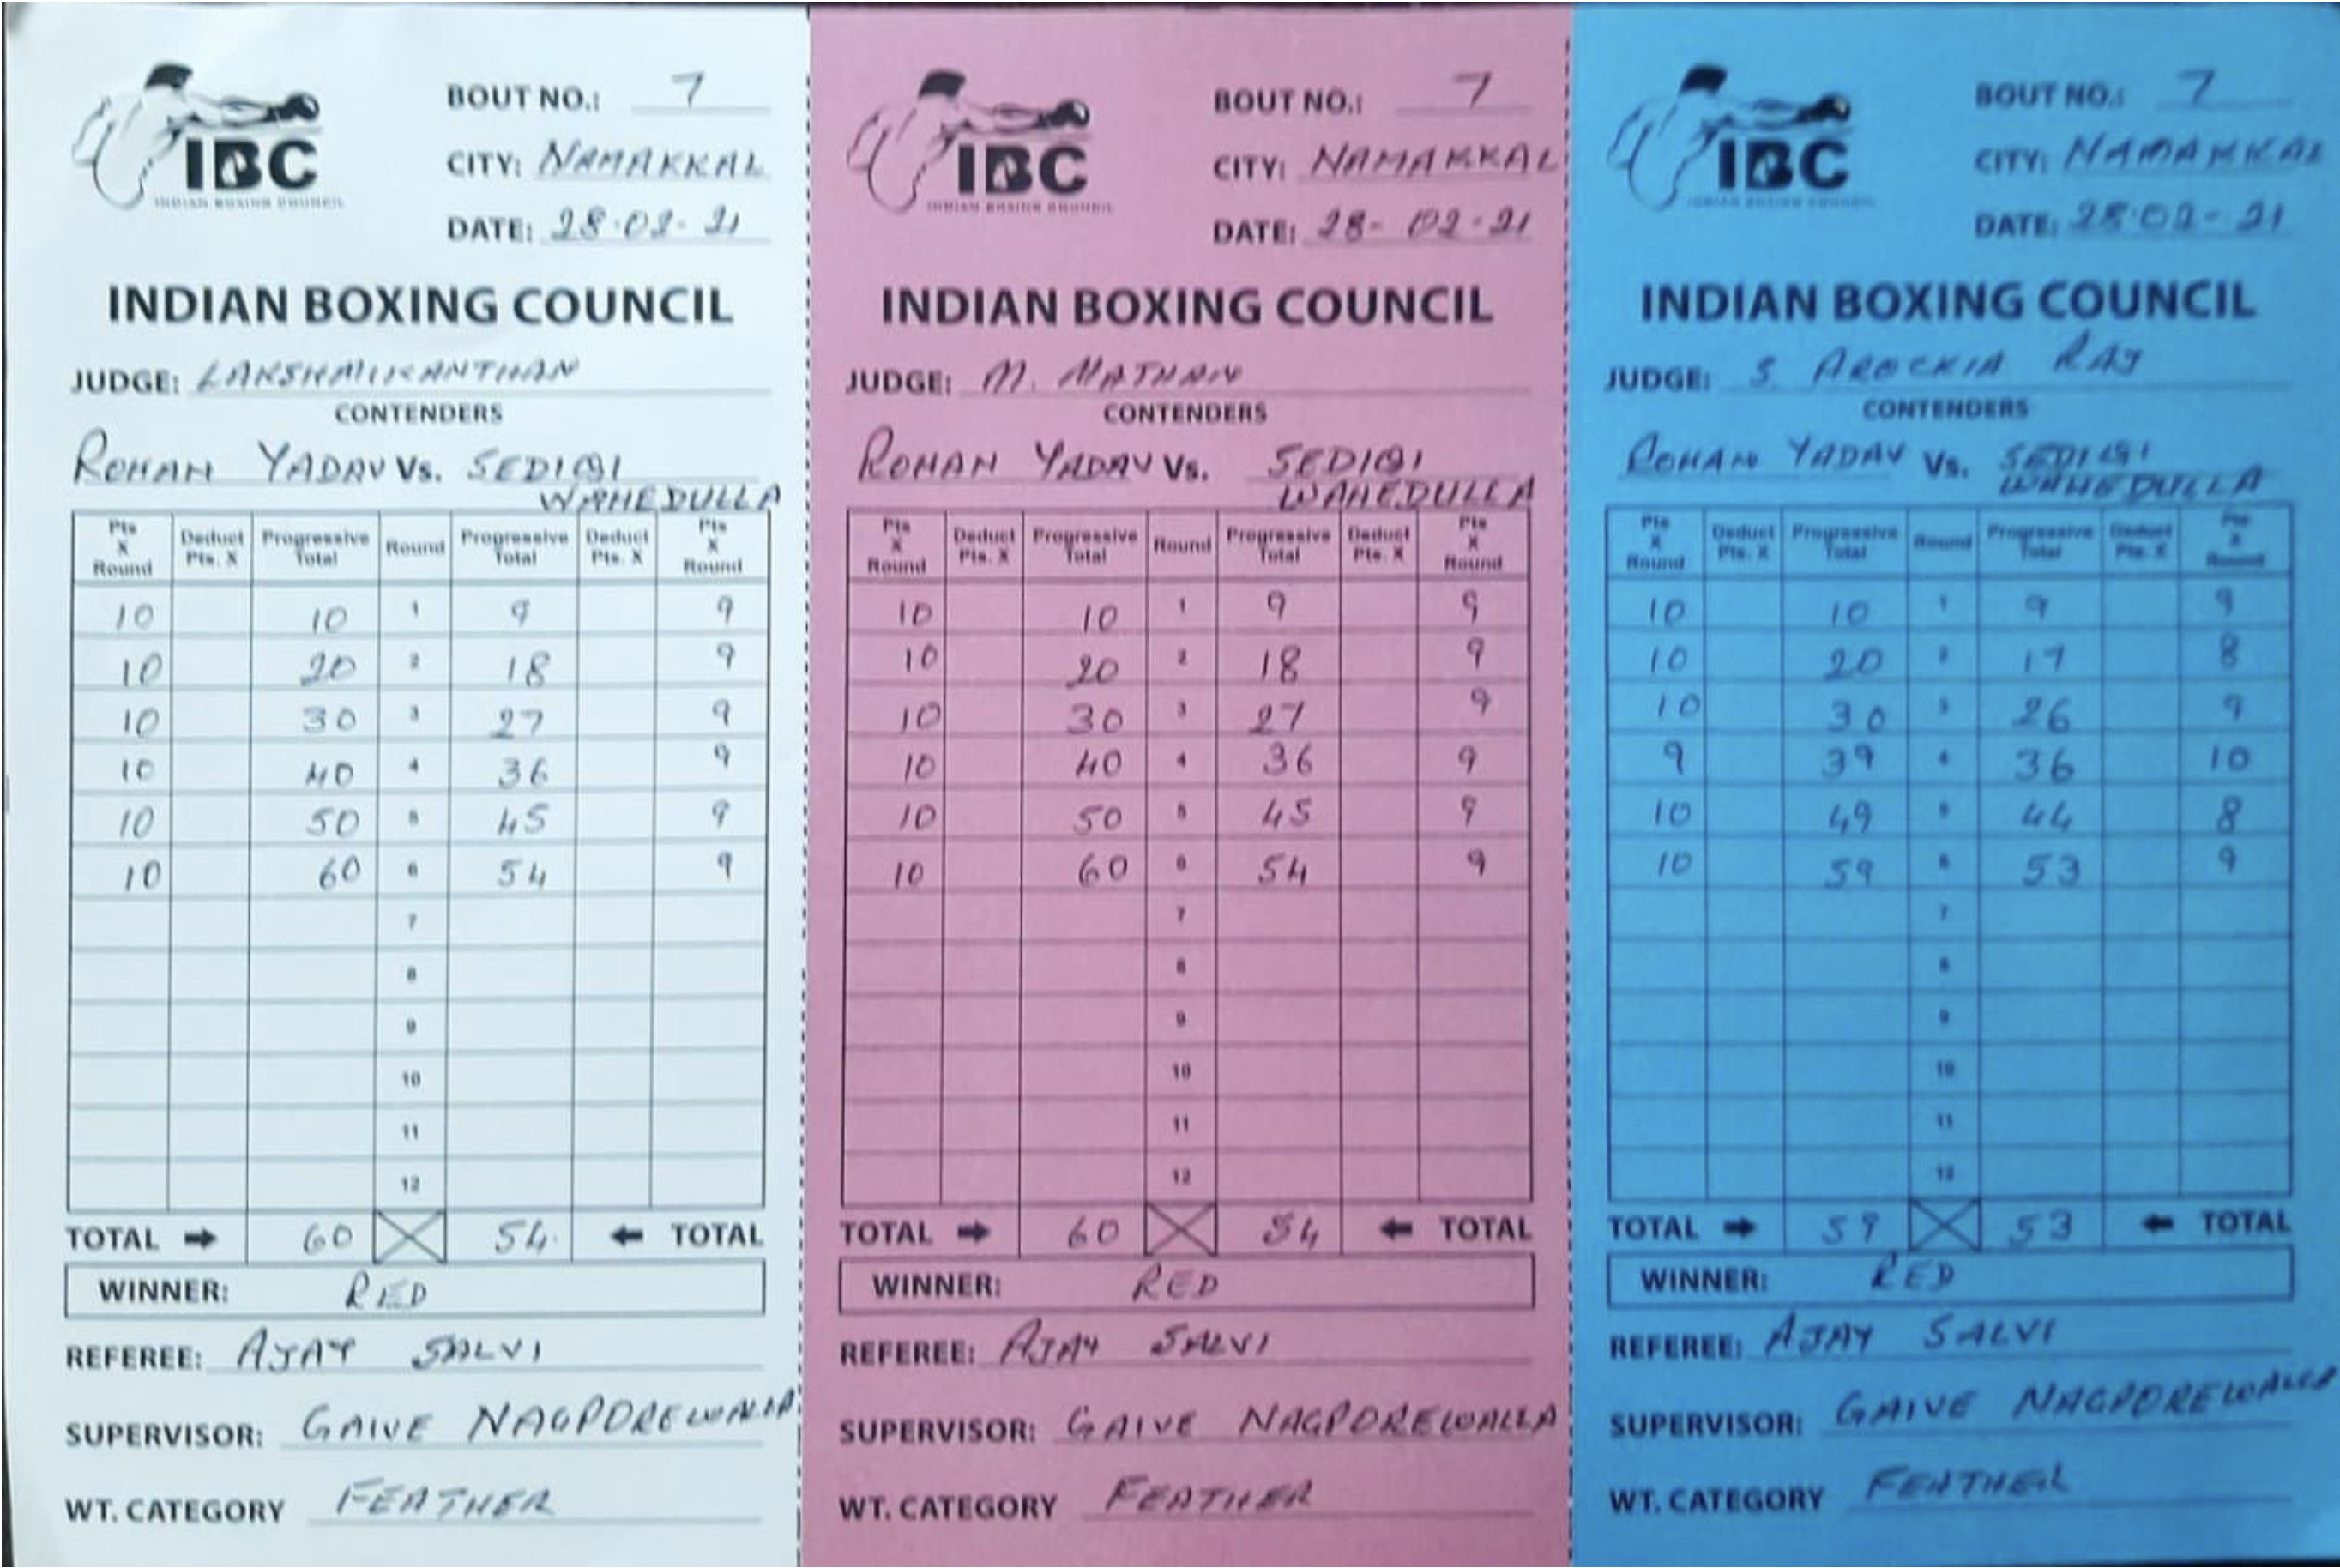 BOUT NO.: 7
IBC
INDIAN BOXING COUNCIL
CITY: NAMAKKAL
DATE: 28.02-21
INDIAN BOXING COUNCIL
JUDGE: LAKSHMIKANTHAN
CONTENDERS
ROHAN YADAV Vs. SEDIQI
WAHEDULLA
Pts X Round Deduct Pts. X Progressive Total Round Progressive Total Deduct Pts. X Pts X Round
10 10 1 9 9
10 20 2 18 9
10 30 3 27 9
10 40 4 36 9
10 50 5 45 9
10 60 6 54 9
7
8
9
10
11
12
TOTAL → 60 54 ← TOTAL
WINNER: RED
REFEREE: AJAY SALVI
SUPERVISOR: GAIVE NAGPOREWALLA
WT. CATEGORY FEATHER
BOUT NO.: 7
IBC
INDIAN BOXING COUNCIL
CITY: NAMAKKAL
DATE: 28-02-21
INDIAN BOXING COUNCIL
JUDGE: M. MATHAN
CONTENDERS
ROHAN YADAV Vs. SEDIQI
WAHEDULLA
Pts X Round Deduct Pts. X Progressive Total Round Progressive Total Deduct Pts. X Pts X Round
10 10 1 9 9
10 20 2 18 9
10 30 3 27 9
10 40 4 36 9
10 50 5 45 9
10 60 6 54 9
7
8
9
10
11
12
TOTAL → 60 54 ← TOTAL
WINNER: RED
REFEREE: AJAY SALVI
SUPERVISOR: GAIVE NAGPOREWALLA
WT. CATEGORY FEATHER
BOUT NO.: 7
IBC
INDIAN BOXING COUNCIL
CITY: NAMAKKAL
DATE: 28.02-21
INDIAN BOXING COUNCIL
JUDGE: S AROCKIA RAJ
CONTENDERS
ROHAN YADAV Vs. SEDIQI
WAHEDULLA
Pts X Round Deduct Pts. X Progressive Total Round Progressive Total Deduct Pts. X Pts X Round
10 10 1 9 9
10 20 2 17 8
10 30 3 26 9
9 39 4 36 10
10 49 5 44 8
10 59 6 53 9
7
8
9
10
11
12
TOTAL → 59 53 ← TOTAL
WINNER: RED
REFEREE: AJAY SALVI
SUPERVISOR: GAIVE NAGPOREWALLA
WT. CATEGORY FEATHER